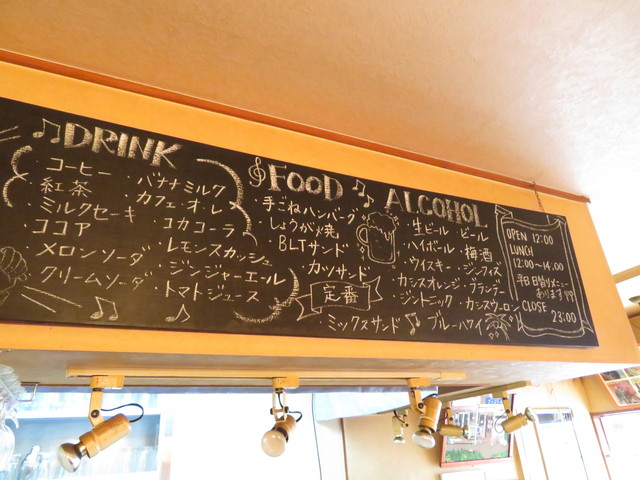 DRINK
コーヒー
紅茶
ミルクセーキ
ココア
メロンソーダ
クリームソーダ
バナナミルク
カフェ・オレ
コカコーラ
レモンスカッシュ
ジンジャーエール
トマトジュース
FOOD
手ごねハンバーグ
しょうが焼
BLTサンド
カツサンド
定番
ミックスサンド
ALCOHOL
生ビール・ビール
ハイボール・梅酒
ウイスキー・ジンフィズ
カシスオレンジ・ブランデー
ジントニック・カシスウーロン
ブルーハワイ
OPEN 12:00
LUNCH
12:00~14:00
平日日替りメニュー
あります
CLOSE
23:00